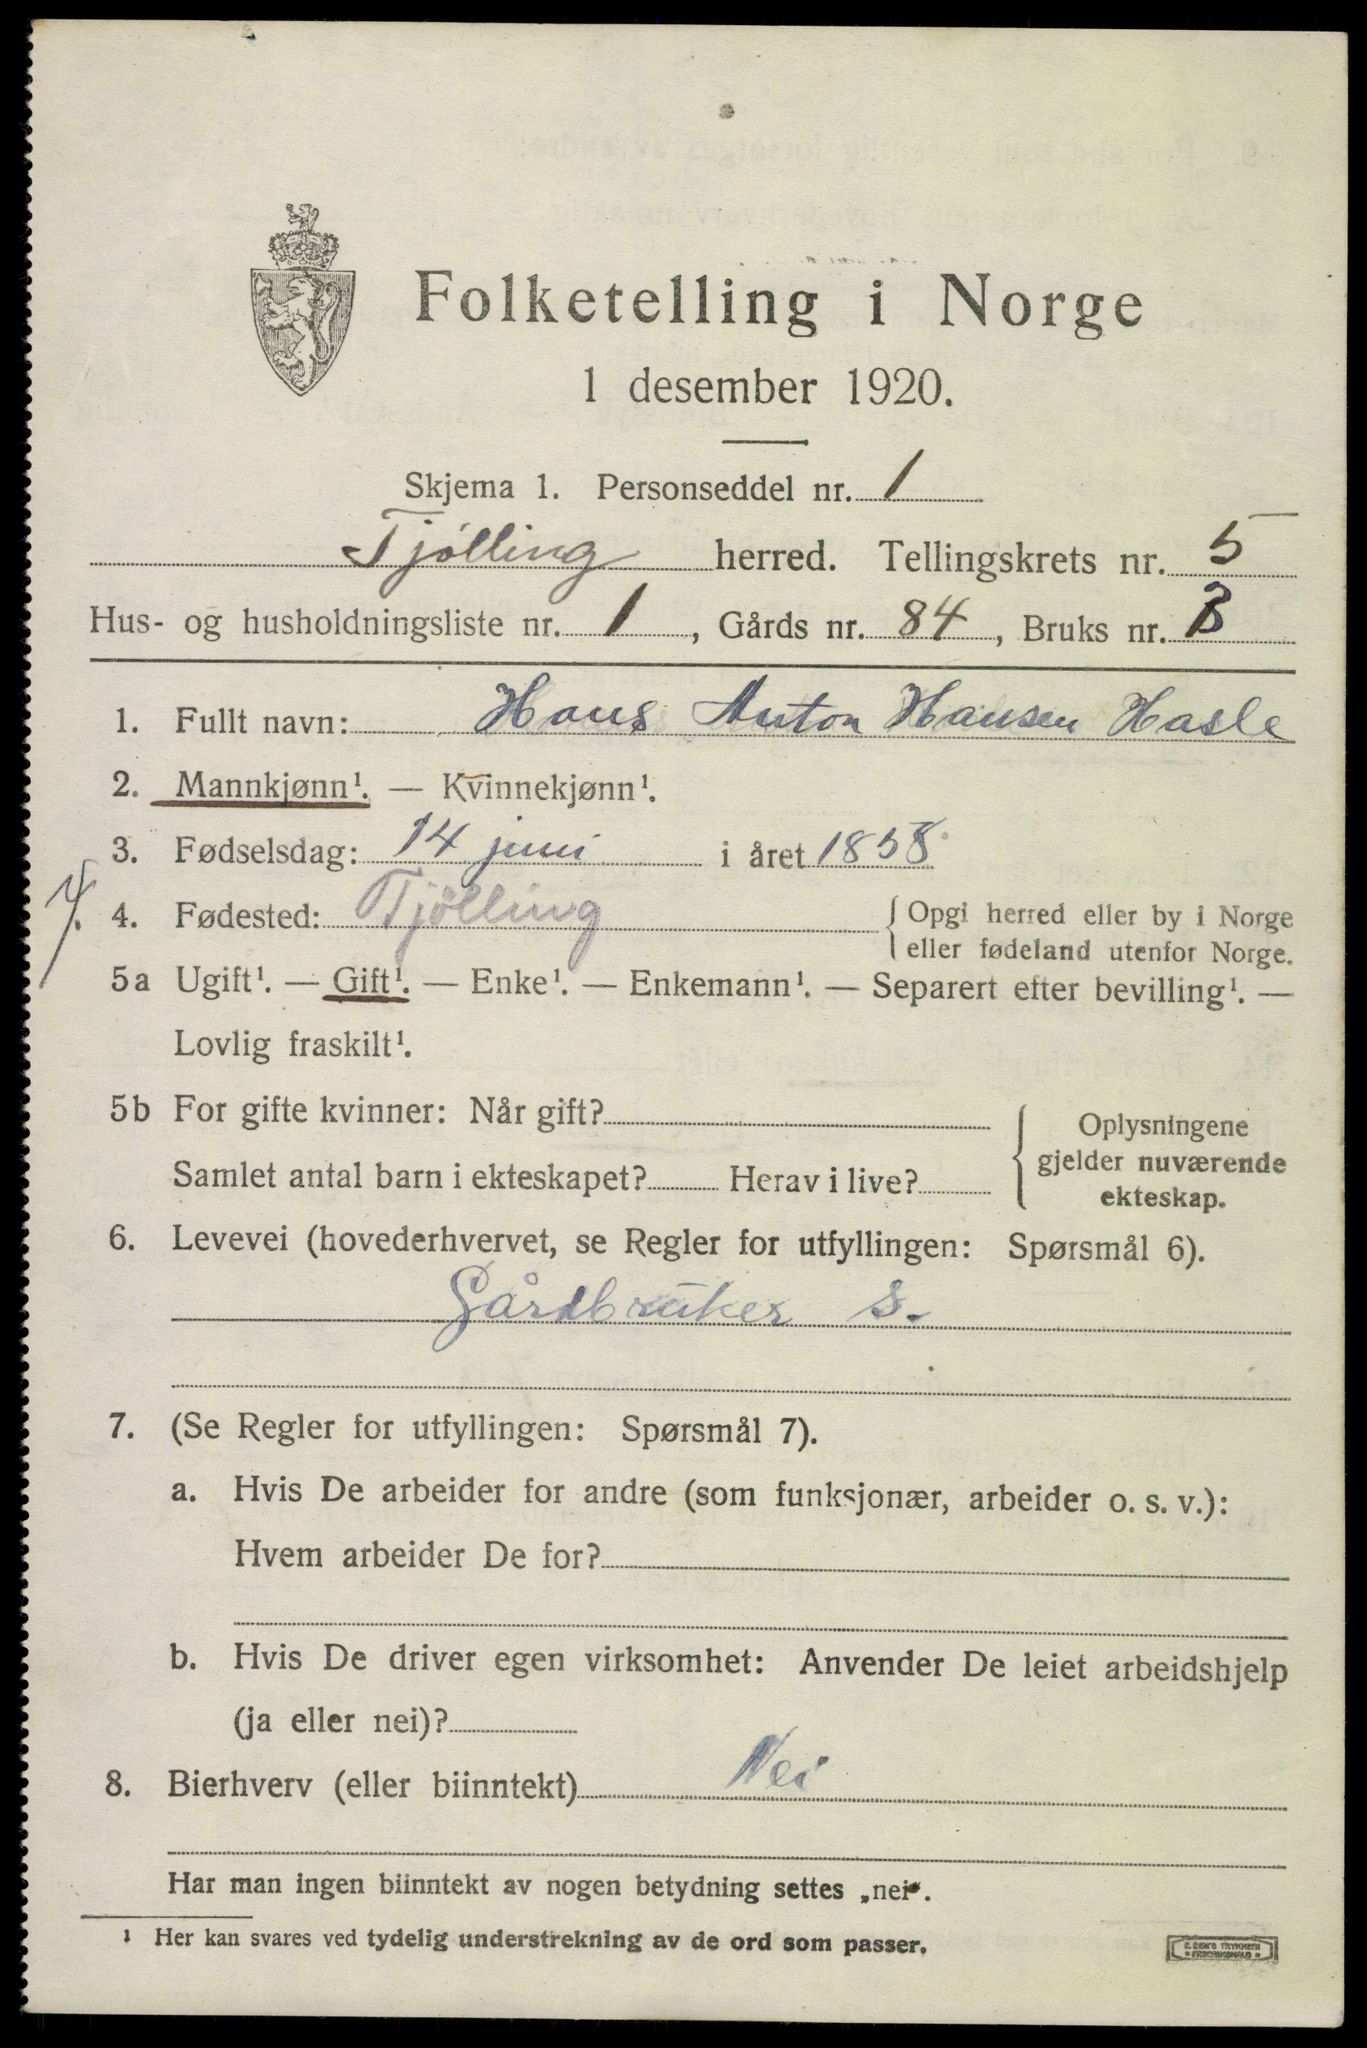 Folketelling i Norge
1 desember 1920.
Skjema 1. Personseddel nr. 1
Tjølling herred. Tellingskrets nr. 5
Hus- og husholdningsliste nr. 1, Gårds nr. 84, Bruks nr. 3
1. Fullt navn: Hans Anton Hansen Hasle
2. Mannkjønn¹. — Kvinnekjønn¹.
3. Fødselsdag: 14 juni i året 1858
4. Fødested: Tjølling { Opgi herred eller by i Norge
eller fødeland utenfor Norge.
5a Ugift¹. — Gift¹. — Enke¹. — Enkemann¹. — Separert efter bevilling¹. —
Lovlig fraskilt¹.
5b For gifte kvinner: Når gift? { Oplysningene
gjelder nuværende
Samlet antal barn i ekteskapet? Herav i live?
ekteskap.
6. Levevei (hovederhvervet, se Regler for utfyllingen: Spørsmål 6).
Gårdbruker s.
7. (Se Regler for utfyllingen: Spørsmål 7).
a. Hvis De arbeider for andre (som funksjonær, arbeider o. s. v.):
Hvem arbeider De for?
b. Hvis De driver egen virksomhet: Anvender De leiet arbeidshjelp
(ja eller nei)?
8. Bierhverv (eller biinntekt) Nei
Har man ingen biinntekt av nogen betydning settes „nei".
¹ Her kan svares ved tydelig understrekning av de ord som passer.